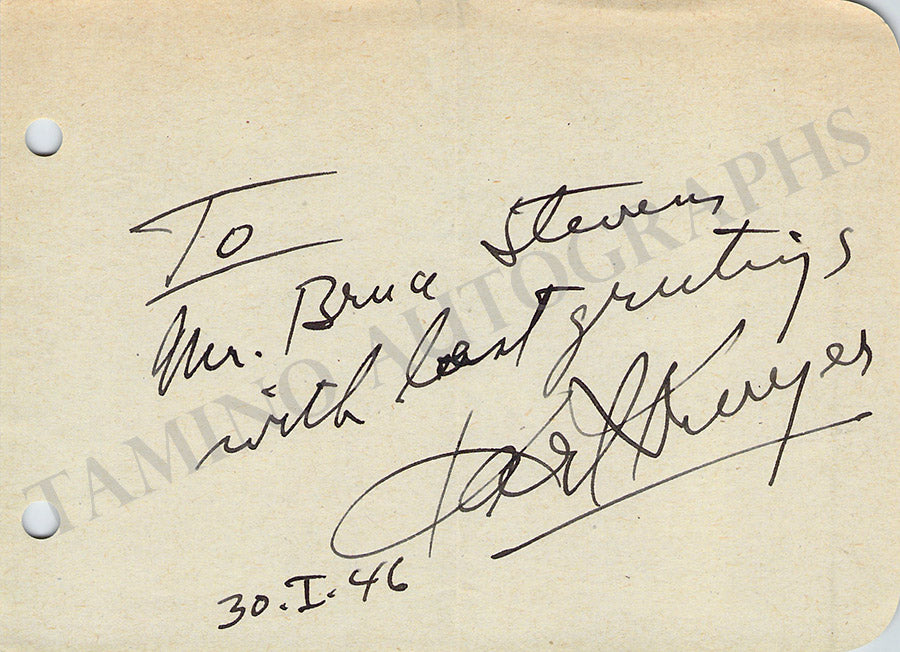 To
Mr. Bruce Stevens
with best greetings
Karl Krueger
30.I.46
TAMINO AUTOGRAPHS